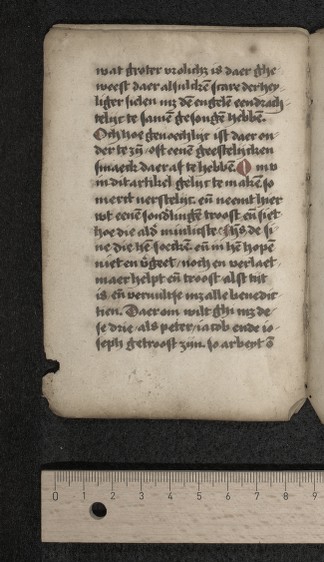 wat groter vrolicheit is daer ghe
weest daer alsulcken scare der hey
liger sielen mz den engelen eendrach
telijc te samen gesongen hebben.
Och hoe genoechlijc ist daer on
der te zijn ofte eenen geestelijcken
smaeck daer af te hebben. Om v
in dit artikel gelijc te maken, so
merct verstelijc. en neemt hier
wt eenen sonderlingen troost en siet
hoe die alder minlicste ihs de si
ne die hem soecken en in hem hopen
niet en vergeet / noch en verlaet
maer helpt en troost alst tijt
is en vervultse mz alle benedic
tien. Daer om wilt ghi mz de
se drie als peter iacob ende io
seph getroost zijn. so arbeyt
0 1 2 3 4 5 6 7 8 9